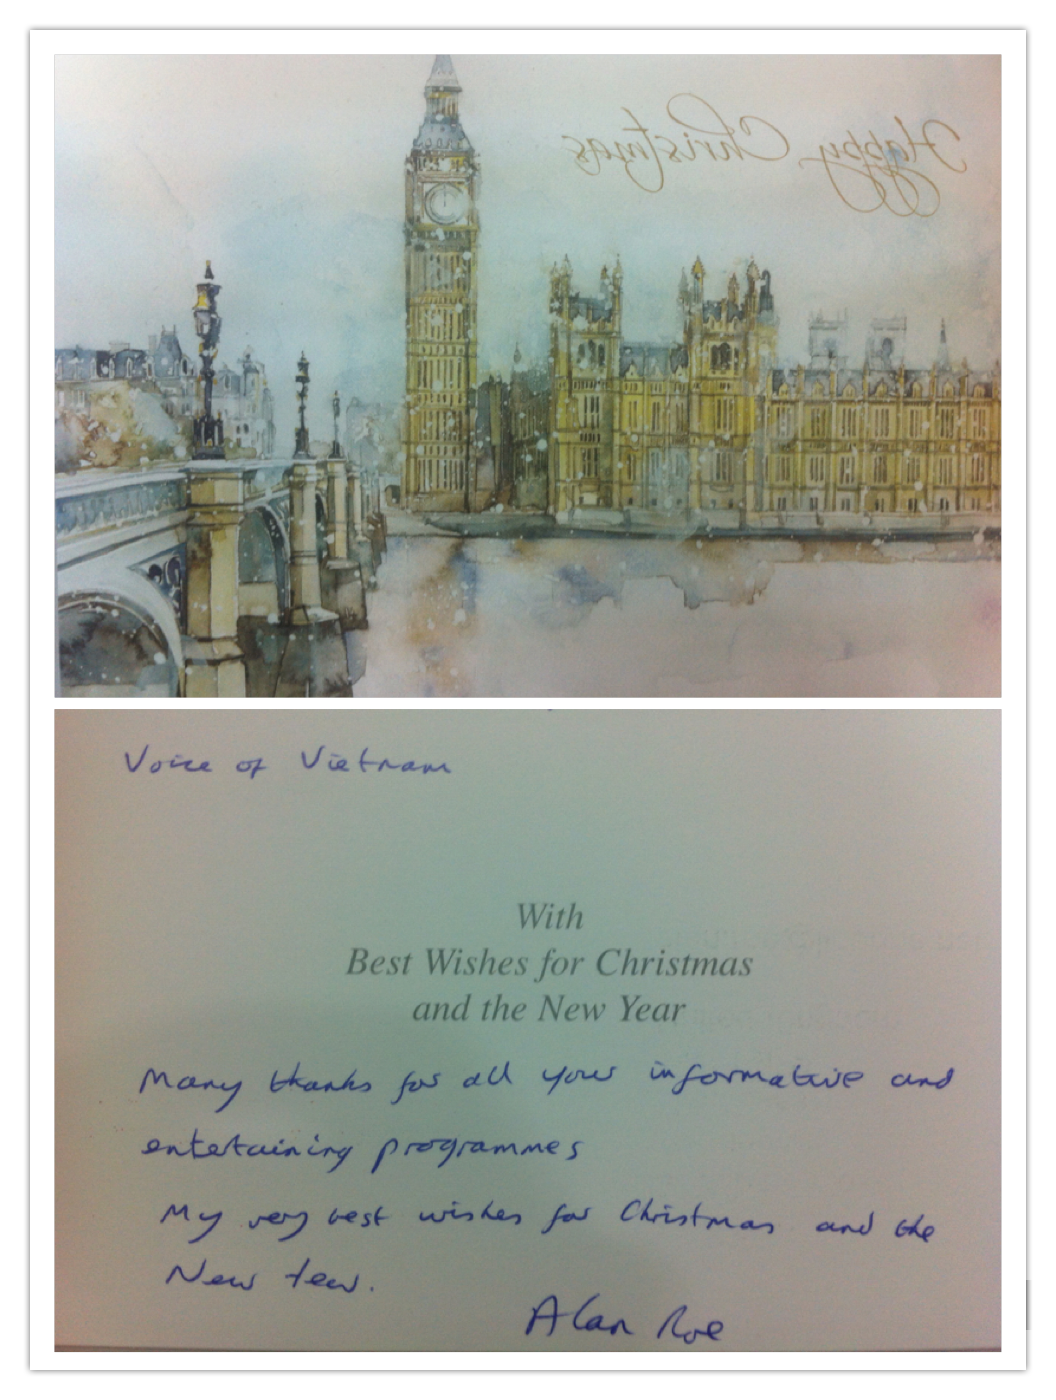 Happy Christmas
Voice of Vietnam
With
Best Wishes for Christmas
and the New Year
Many thanks for all your informative and
entertaining programmes
My very best wishes for Christmas and the
New Year.
Alan Roe